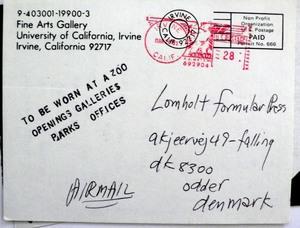 9-403001-19900-3
Fine Arts Gallery
University of California, Irvine
Irvine, California 92717
IRVINE
CALIF.
692904
28
Non Profit
Organization
Postage
PAID
Permit No. 666
TO BE WORN AT A ZOO
OPENINGS GALLERIES
PARKS OFFICES
AIRMAIL
Lomholt Formular Press
akjeervej 49 - falling
dk 8300
odder
denmark